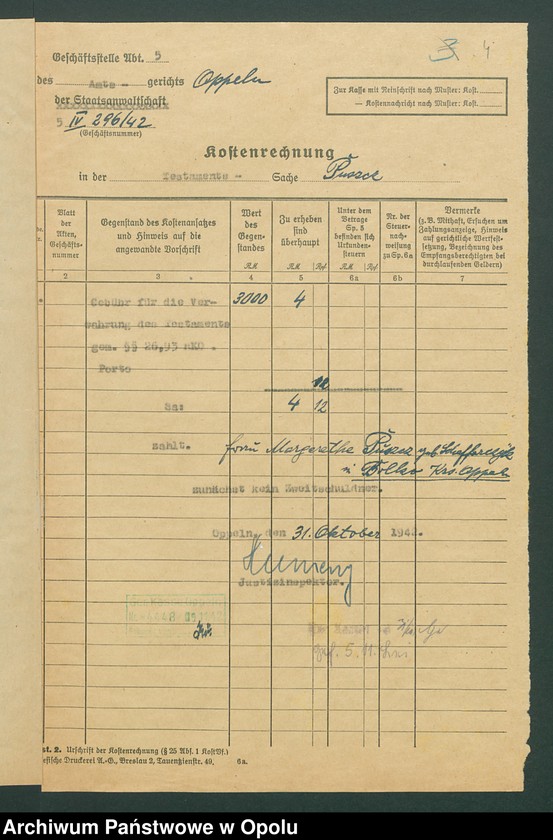 Geschäftsstelle Abt. 5
des Amts - gerichts Oppeln
der Staatsanwaltschaft
5 IV 296/42
(Geschäftsnummer)
4
Zur Kasse mit Reinschrift nach Muster: Kost.
— Kostennachricht nach Muster: Kost.
Kostenrechnung
in der Testaments - Sache
Blatt der Akten, Geschäftsnummer
Gegenstand des Kostenansatzes und Hinweis auf die angewandte Vorschrift
Wert des Gegenstandes
RM
Zu erheben sind überhaupt
RM Rpf
Unter dem Betrage Sp. 5 befinden sich Urkundensteuern
RM Rpf
Nr. der Steuernachweisung zu Sp. 6a
Vermerke
(z. B. Mithaft, Ersuchen um Zahlungsanzeige, Hinweis auf gerichtliche Wertfestsetzung, Bezeichnung des Empfangsberechtigten bei durchlaufenden Geldern)
2 3 4 5 6a 6b 7
Gebühr für die Ver- 3000 4
wahrung des Testaments
gem. §§ 26,93 RKO.
Porto
12
Sa: 4 12
zahlt. Frau Margarethe
in Krs. Oppeln
zunächst kein Zweitschuldner.
Oppeln, den 31. Oktober 1942.
Justizinspektor.
st. 2. Urschrift der Kostenrechnung (§ 25 Abs. 1 KostVf.)
esische Druckerei A.-G., Breslau 2, Tauentzienstr. 49. 6a.
Archiwum Państwowe w Opolu